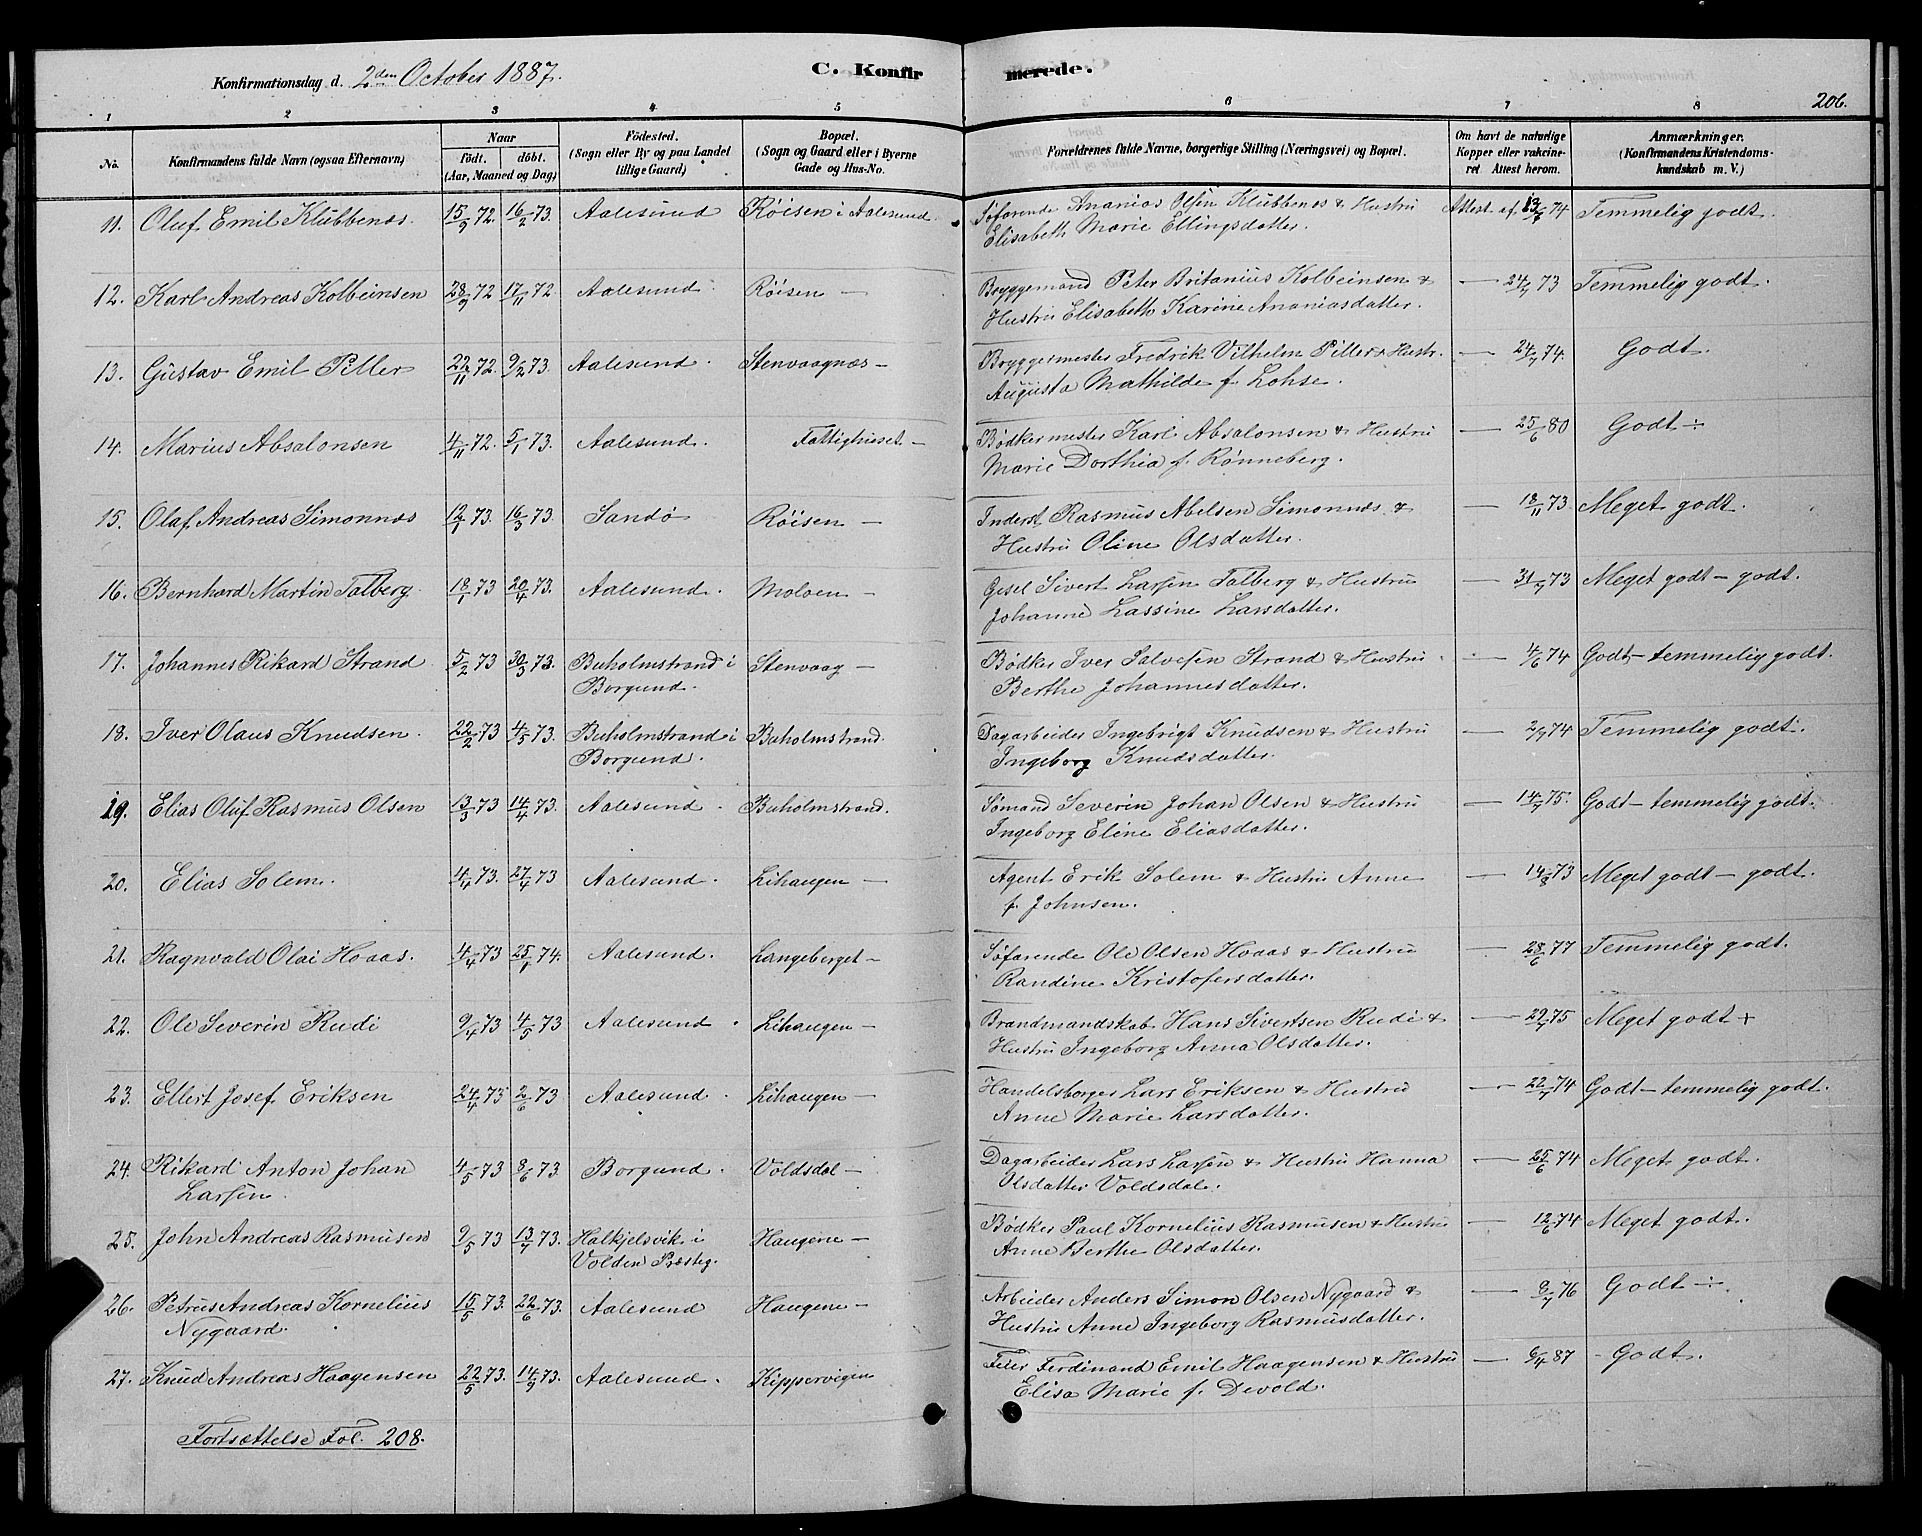 Konfirmationsdag d. 2den October 1887.
C. Konfirmerede.
206.
1 2 3 4 5 6 7 8
No.
Konfirmandens fulde Navn (ogsaa Efternavn)
Naar
födt. döbt.
(Aar, Maaned og Dag)
Födested.
(Sogn eller By og paa Landet
tillige Gaard)
Bopæl.
(Sogn og Gaard eller i Byerne
Gade og Hus-No.
Forældrenes fulde Navne, borgerlige Stilling (Næringsvei) og Bopæl.
Om havt de naturlige
Kopper eller vakcine-
ret Attest herom.
Anmærkninger.
(Konfirmandens Kristendoms-
kundskab m. V.)
11. Oluf Emil Klubbenæs. 15/9 72. 16/2 73. Aalesund Röisen i Aalesund. Søfarende Ananias Olsen Klubbenæs & Hustru Attest af 13/6 74 Temmelig godt.
Elisabeth Marie Ellingsdatter.
12. Karl Andreas Kolbeinsen 28/9 72 17/11 72. Aalesund. Röisen — Bryggemand Peter Britanius Kolbeinsen & — 24/7 73 Temmelig godt.
Hustru Elisabeth Karine Ananiasdatter.
13. Gustav Emil Piller 22/11 72. 9/2 73. Aalesund. Stenvaagnæs — Bryggermester Fredrik Vilhelm Piller & Hustr. — 24/7 74. Godt.
Augusta Mathilde f. Lohse.
14. Marius Absalonsen 4/11 72. 5/1 73. Aalesund. Fattighuset — Bødkermester Karl Absalonsen & Hustru — 25/6 80 Godt ÷
Marie Dorthia f. Rønneberg.
15. Olaf Andreas Simonnæs 12/1 73. 16/3 73. Sandö Röisen — Inderst Rasmus Abelsen Simonnæs & — 18/11 73 Meget godt.
Hustru Oline Olsdatter.
16. Bernhard Martin Talberg. 18/1 73 20/4 73. Aalesund. Moloen — Gesel Sivert Larsen Talberg & Hustru — 31/7 73 Meget godt — godt.
Johanne Lassine Larsdatter.
17. Johannes Rikard Strand 5/2 73 30/3 73. Buholmstrand i Stenvaag — Bödker Iver Salvesen Strand & Hustru — 4/6 74 Godt — temmelig godt.
Borgund. Berthe Johannesdatter.
18. Iver Olaus Knudsen. 22/2 73 4/5 73. Buholmstrand i Buholmstrand. Dagarbeider Ingebrigt Knudsen & Hustru — 2/7 74 Temmelig godt.
Borgund. Ingeborg Knudsdatter.
19. Elias Oluf Rasmus Olsen 13/3 73 14/4 73. Aalesund. Buholmstrand. Sömand Severin Johan Olsen & Hustru — 14/7 75. Godt — temmelig godt.
Ingeborg Eline Eliasdatter.
20. Elias Solem. 4/4 73. 27/4 73 Aalesund. Lihaugen — Agent Erik Solem & Hustru Anne — 14/8 73 Meget godt — godt.
f. Johnsen.
21. Ragnvald Olai Hoaas. 4/4 73 25/1 74. Aalesund. Langeberget — Söfarende Ole Olsen Hoaas & Hustru — 28/6 77 Temmelig godt.
Randine Kristofersdatter.
22. Ole Severin Rudi 9/4 73 4/5 73 Aalesund. Lihaugen — Brandmandskab Hans Sivertsen Rudi & — 29/7 75 Meget godt +
Hustru Ingeborg Anna Olsdatter.
23. Ellert Josef Eriksen 24/4 73 2/6 73 Aalesund. Lihaugen — Handelsborger Lars Eriksen & Hustru — 22/7 74 Godt — temmelig godt.
Anne Marie Larsdatter.
24. Rikard Anton Johan 4/5 73 8/6 73 Borgund. Voldsdal — Dagarbeider Lars Larsen & Hustru Hanna — 25/6 74 Meget godt.
Larsen. Olsdatter Voldsdal.
25. John Andreas Rasmusen 9/5 73 13/7 73. Halkjelsvik i Haugene — Bödker Paul Kornelius Rasmusen & Hustru — 12/6 74 Meget godt.
Volden Præsteg. Anne Berthe Olsdatter.
26. Petrus Andreas Kornelius 15/5 73. 22/6 73. Aalesund Haugene — Arbeider Anders Simon Olsen Nygaard & — 8/7 76 Godt ÷
Nygaard. Hustru Anne Ingeborg Rasmusdatter.
27. Knud Andreas Haagensen 22/5 73. 14/9 73. Aalesund. Kippervigen Feier Ferdinand Emil Haagensen & Hustru — 6/4 87 - Godt.
Elisa Marie f. Devold.
Fortsættelse Fol. 208.